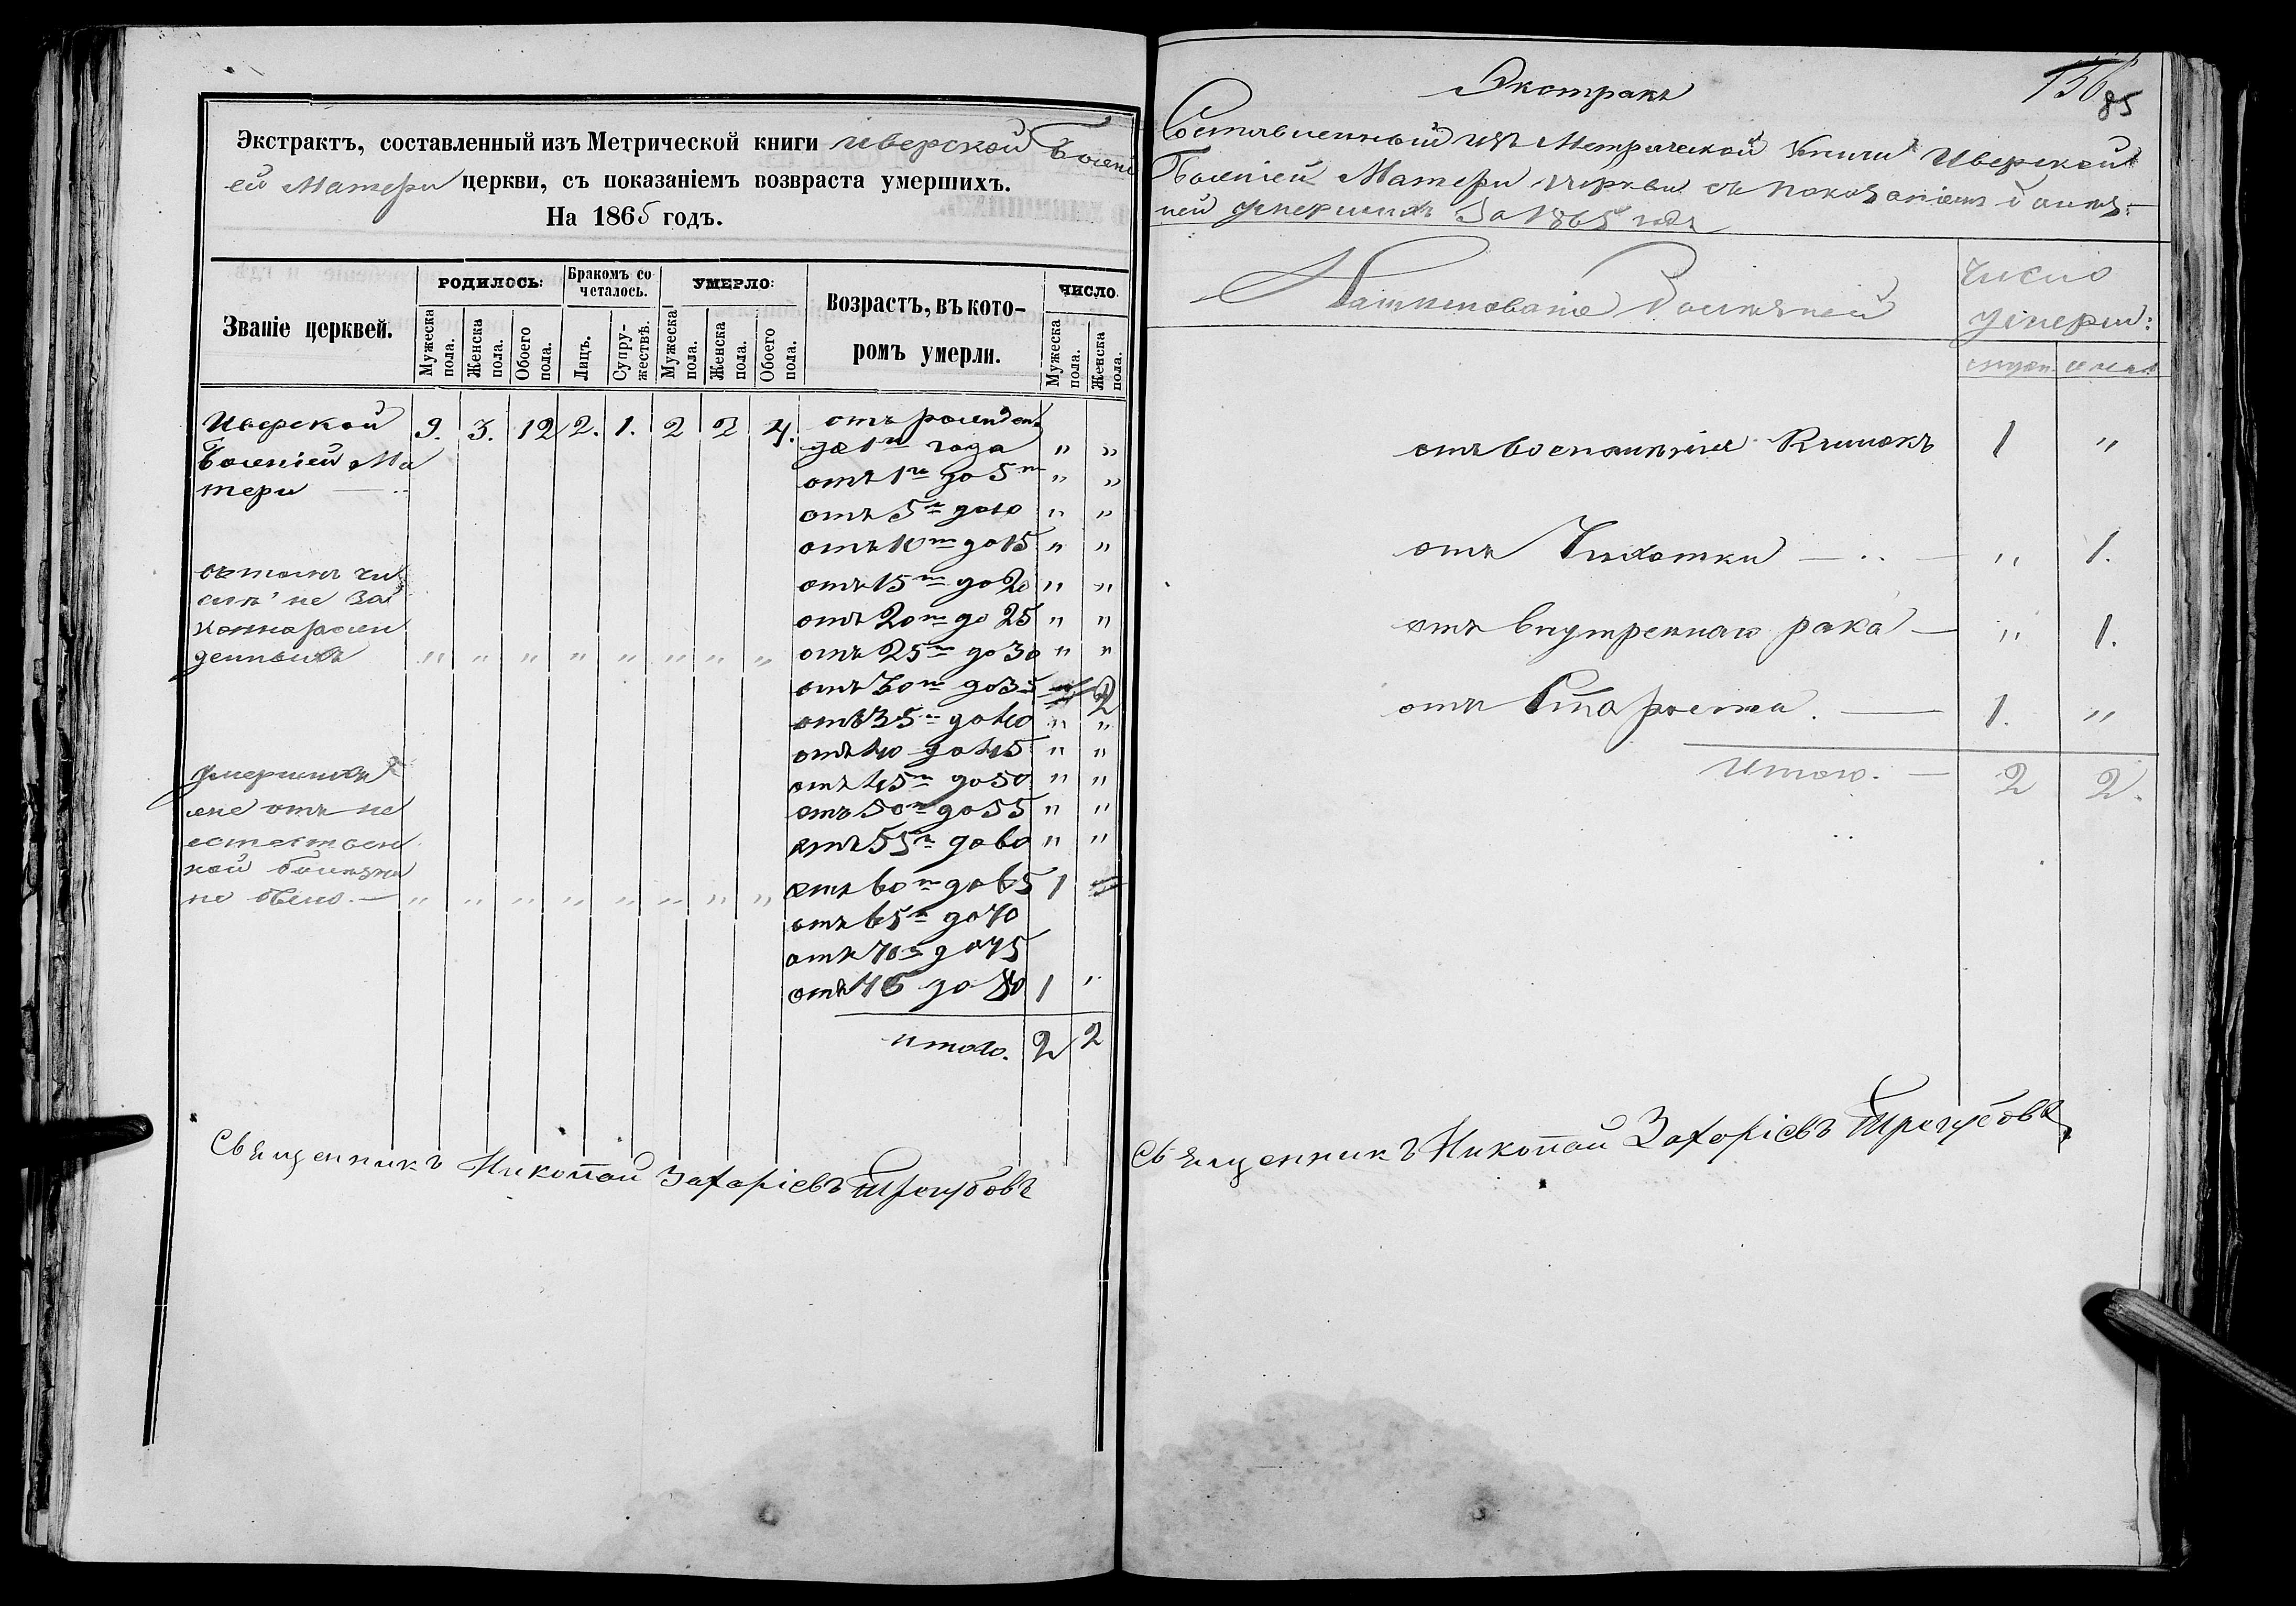 Экстрактъ, составленный изъ Метрической книги Иверской Божі
ей Матери церкви, съ показаніемъ возвраста умершихъ.
На 1865 годъ.
Званіе церквей.
РОДИЛОСЬ:
Бракомъ со
четалось.
УМЕРЛО:
Возрастъ, въ кото-
ромъ умерли.
ЧИСЛО.
Мужеска пола.
Женска пола.
Обоего пола.
Лицъ.
Супру-жествъ.
Мужеска пола.
Женска пола.
Обоего пола.
Мужеска пола.
Женска пола.
Иверской 9. 3. 12 2. 1. 2 2 4. отъ рожден:
Божіей Ма до 1го года " "
тери отъ 1го до 5ти " "
отъ 5ти до 10 " "
отъ 10ти до 15 " "
въ томъ чи
отъ 15ти до 20 " "
слѣ не за
отъ 20ти до 25 " "
коннорож
денныхъ " " " " " " " " отъ 25ти до 30 " "
отъ 30ти до 35 2
отъ 35ти до 40 " "
отъ 40 до 45 " "
умершихъ
отъ 45ти до 50 " "
же отъ не
отъ 50ти до 55 " "
естествен
отъ 55ти до 60 " "
ной болѣзни
не было. — " " " " " " " " отъ 60ти до 65 1
отъ 65ти до 70
отъ 70ти до 75
отъ 75 до 80 1 "
итого. 2 2
Священникъ Николай Захаріевъ Трегубовъ
156
85
Экстрактъ
Составленный изъ Метрической книги Иверской
Божіей Матери церкви съ показаніемъ болѣз-
ней умершихъ за 1865 годъ
Наименованіе Болѣзней
Число
умерш:
мужес. женск.
отъ воспаленія кишокъ 1 "
отъ Чихотки — " 1.
отъ внутреннаго рака — " 1.
отъ Старости. — 1. "
Итого. — 2 2.
Священникъ Николай Захаріевъ Трегубовъ